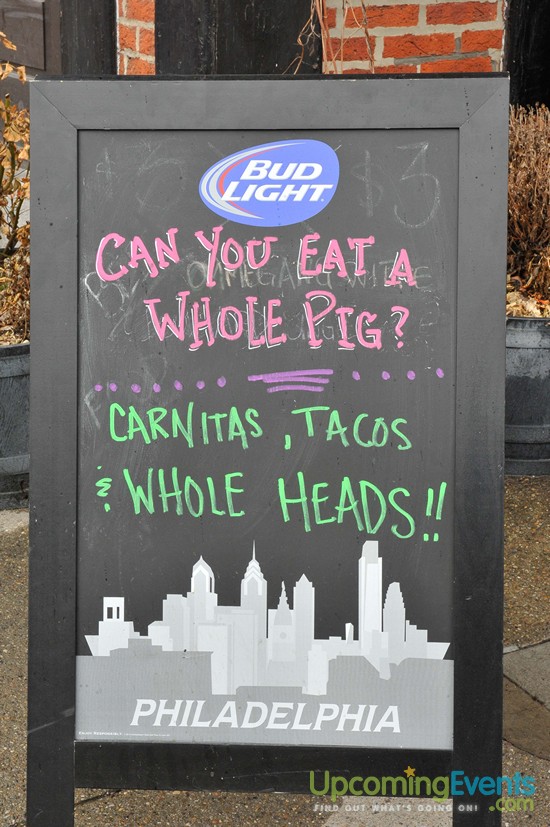 $3
BUD
LIGHT
CAN YOU EAT A
WHOLE PIG?
CARNITAS, TACOS
& WHOLE HEADS!!
PHILADELPHIA
UpcomingEvents
FIND OUT WHAT'S GOING ON! .com